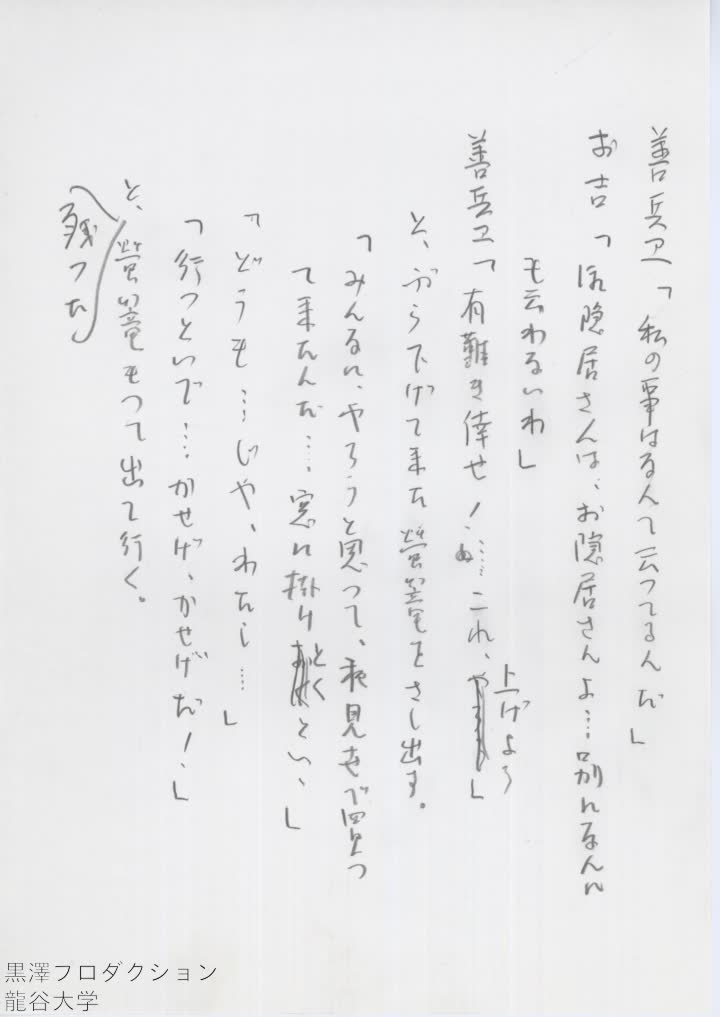 善兵衛「私の事はなんて云ってるんだ」
お吉「ご隠居さんは、お隠居さんよ…別になんに
も云わないわ」
善兵衛「有難き倖せ！……これ、上げよう」
と、ぶら下げて来た螢籠をさし出す。
「みんなに、やろうと思って、夜見世で買っ
て来たんだ…窓に掛けとくといゝ」
「どうも…じゃ、わたし…」
「行っといで…かせげ、かせげだ！」
と、螢籠もって出て行く。
残った
黒澤プロダクション
龍谷大学